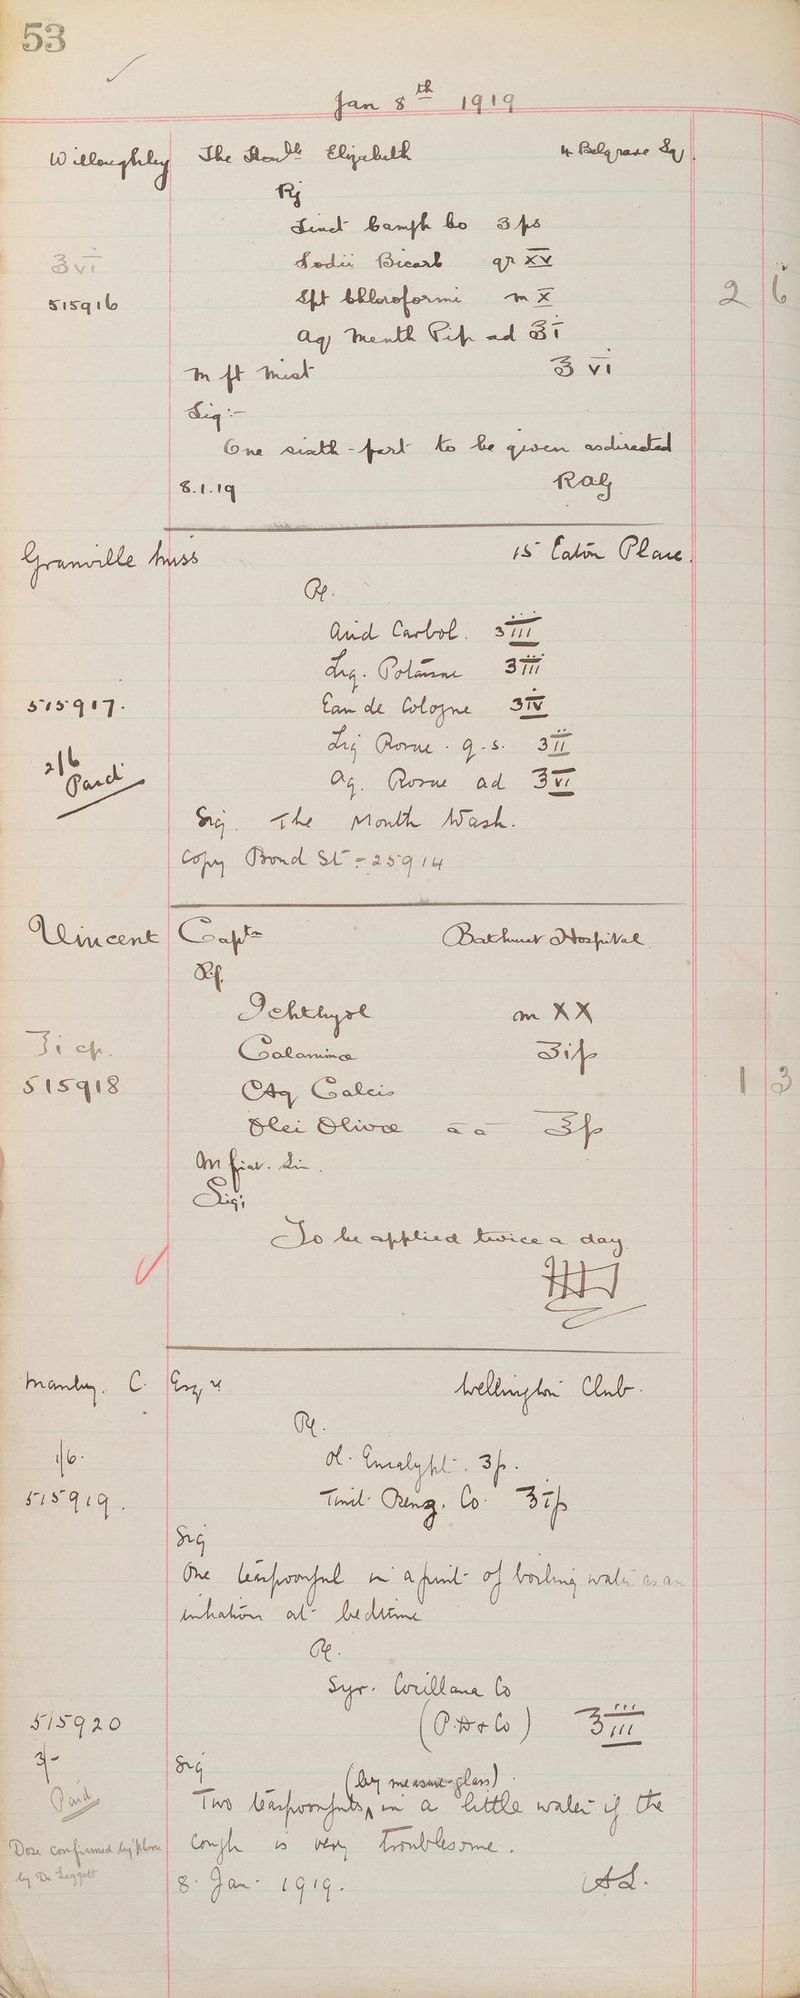 53
Jan 8th 1919
Willoughby The Honble Elizabeth 4 Belgrave Sq
Rx
Tinct Camph Co ʒ ſs
Sodii Bicarb gr XV
ʒ vi
515916 Spt Chloroformi m X 2 6
Aq Menth Pip ad ℥ i
m ft mist ℥ vi
Sig:-
One sixth-part to be given as directed
8.1.19 RAG
Granville Miss 15 Eaton Place.
Rx.
Acid Carbol. ʒ iii
Liq. Potassae ʒ iii
515917. Eau de Cologne ʒ iv
Liq Rosae. q.s. ʒ ii
2/6 Paid
Aq. Rosae ad ℥ vi
Sig. The Mouth Wash.
Copy Bond St = 25914
Vincent Captn Bathurst Hospital.
Rx
Ichthyol m XX
℥ i cp. Calaminae ʒ i ſs
515918 Aq Calcis 1 3
Olei Olivae āā ℥ ſs
M fiat. Lin.
Sig;
To be applied twice a day.
Manley. C. Esqre Wellington Club.
Rx.
1/6. Ol. Eucalypt. ʒ ſs.
515919. Tinct. Benz. Co. ℥ i ſs
Sig
One teaspoonful in a pint of boiling water as an
inhation at bedtime
Rx.
Syr. Cocillana Co
515920 (P.D & Co) ℥ iii
3/- Sig
Paid (by measure-glass)
Two teaspoonfuls in a little water if the
Dose confirmed by 'phone cough is very troublesome.
by Dr Leggatt 8. Jan. 1919. AL.